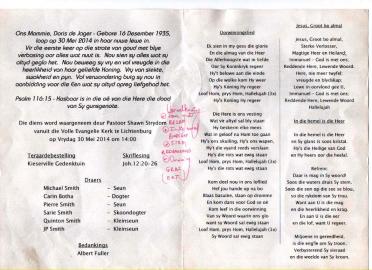 Ons Mammie, Doris de Jager - Gebore 16 Desember 1935,
loop op 30 Mei 2014 in haar nuwe lewe in.
Vir die eerste keer op die strate van goud met blye
verbasing oor alles wat nuut is. Nou sien sy alles wat sy
altyd geglo het. Nou beweeg sy vry en vol vreugde in die
heerlikheid van haar geliefde Koning. Vry van siekte,
swakheid en pyn. Vol verwondering buig sy nou in
aanbidding voor die Een wat sy altyd opreg liefgehad het.
Psalm 116:15 - Kosbaar is in die oë van die Here die dood
van Sy gunsgenote.
Die diens word waargeneem deur Pastoor Shawn Strydom
vanuit die Volle Evangelie Kerk te Lichtenburg
op Vrydag 30 Mei 2014 om 14:00
Teraardebestelling
Kieserville Gedenktuin
Skriflesing
Joh.12:20-26
Draers
Michael Smith - Seun
Carin Botha - Dogter
Pierre Smith - Seun
Sarie Smith - Skoondogter
Quinton Smith - Kleinseun
JP Smith - Kleinseun
Bedankings
Albert Fuller
Oorwinningslied
Ek sien in my gees die glorie
en die almag van die Heer
Die Allerhoogste wat in liefde
Oor Sy Koninkryk regeer
Hy's bekend aan die einde
Op die wolke kom Hy weer
Hy's Koning Hy regeer
Loof Hom, prys Hom, Hallelujah (3x)
Hy's Koning Hy regeer
Die Here is ons vesting
Wat vir altyd sal bly staan
Hy beskerm elke mens
Wat in geloof na Hom toe gaan
Hy's ons skuilplek, Hy's ons wapen,
Hy's die wyand reeds verslaan
Hy's die rots wat ewig staan
Loof Hom, prys Hom, Hallelujah (3x)
Hy's die rots wat ewig staan
Kom deel nou in ons loflied
Hef jou hande op na bo
Blaas basuine, slaan op dromme
En kom dans voor God se oë
Kom leef in die oorwinning
Van sy Woord waarin ons glo
want sy Woord sal ewig staan
Loof Hom, prys Hom, Hallelujah (3x)
Sy Woord sal ewig staan
Jesus, Groot bo almal
Jesus, Groot bo almal,
Sterke Verlosser,
Magtige Heer en Heiland;
Immanuel - God is met ons,
Reddende Heer, Lewende Woord.
Here, Hy's meer teyfel
vreugde en blydskap
Lewe in oorvloed gee U,
Immanuel - God is met ons,
Reddende Heer, Lewende Woord
Halleluja
In die hemel is die Heer
In die hemel is die Heer
en Sy glans is soos kristal.
Hy's die Heilige van God
en Hy heers oor die heelal.
Refrein:
Daar is mag in Sy woord!
Soos die waters druis Sy stem.
Soos die son op die see so blou,
so die rykdom van Sy trou.
Want aan U is die mag
en die heerlikheid en krag.
En aan U is die eer
en die lof, wat ewig duur.
Miljoene in gereedheid,
is die engele om Sy troon.
Verbysterend Sy sieraad
en die weelde van Sy kroon.